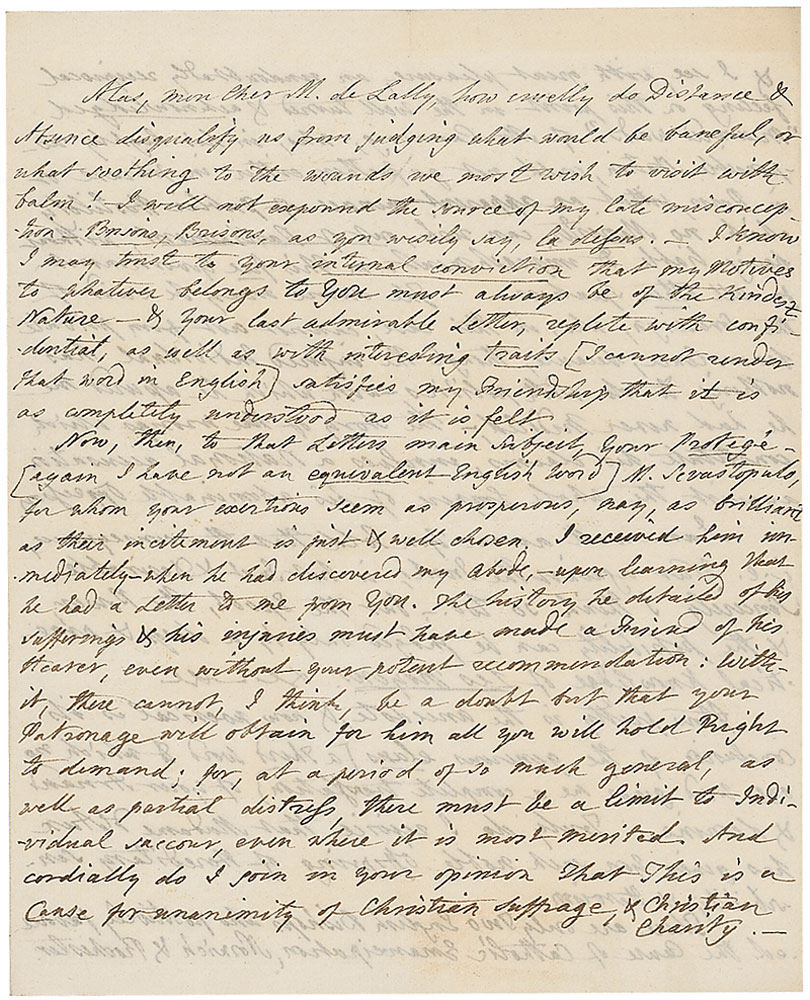 Alas, mon cher M. de Lally, how cruelly do Distance &
Absence disqualify us from judging what would be baneful, or
what soothing to the wounds we most wish to visit with
balm! - I will not expound the source of my late misconcep-
tion - Brisons, Brisons, as you wisily say, la desens. - I know
I may trust to your internal conviction that my Motives
to whatever belongs to You must always be of the Kindest
Nature - & your last admirable Letter, replete with confi-
-dential, as well as with interesting traits [I cannot render
that word in English] satisfies my Friendship that it is
as completely understood as it is felt
Now, then, to that Letters main subject, your Protegé -
[again I have not an equivalent English word] M. Sevastopulo,
for whom your exertions seem as prosperous, nay, as brilliant
as their incitement is just & well chosen. I received him im-
-mediately - when he had discovered my abode, - upon learning that
he had a Letter to me from You. The history he detailed of his
sufferings & his injuries must have made a Friend of his
Hearer, even without your potent recommendation: With-
it, there cannot, I think, be a doubt but that your
Patronage will obtain for him all you will hold Right
to demand; for, at a period of so much general, as
well as partial distress, there must be a limit to Indi-
-vidual succour, even where it is most merited. And
cordially do I join in your opinion that This is a
Cause for unanimity of Christian Suffrage, & Christian
Charity. -